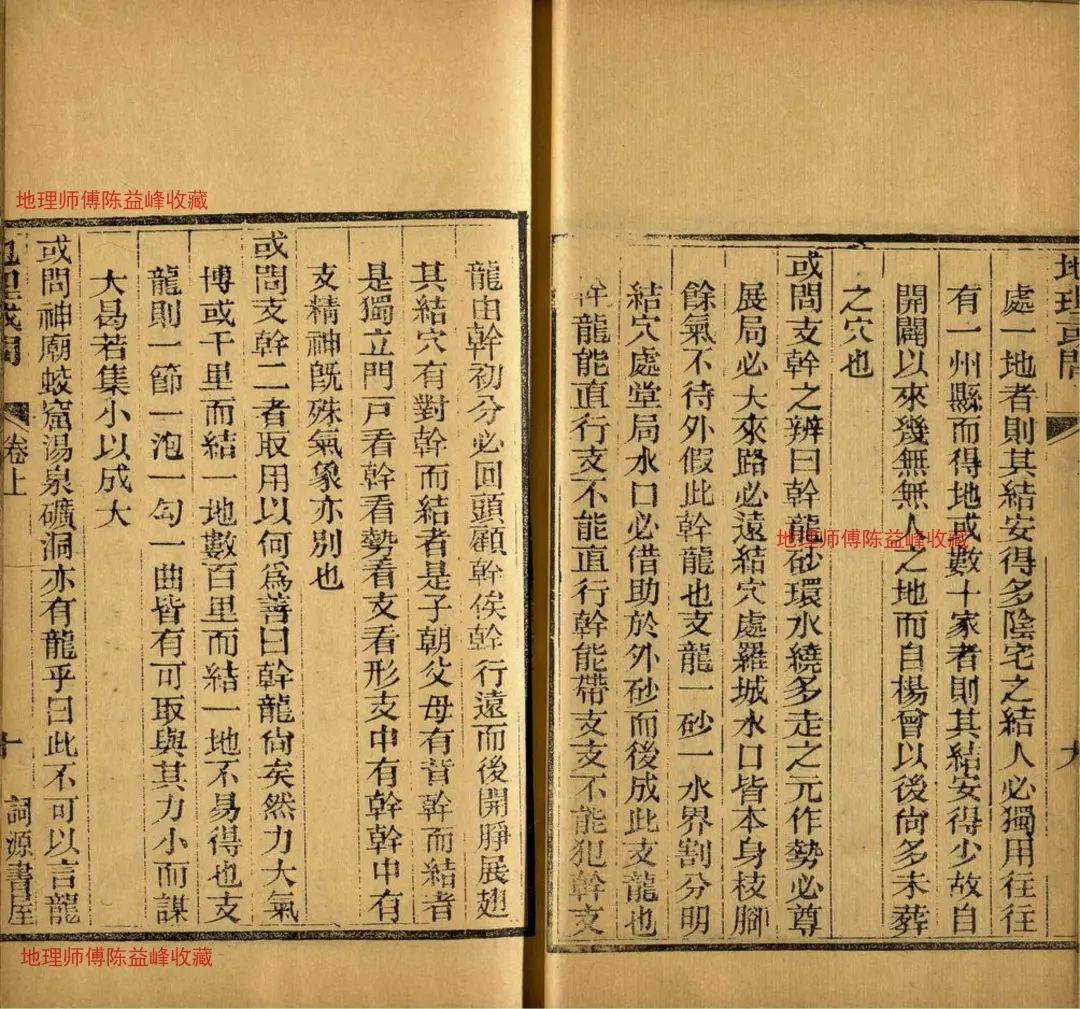 地理或問
九
處一地者則其結安得多陰宅之結人必獨用往往
有一州縣而得地或數十家者則其結安得少故自
開闢以來幾無無人之地而自楊曾以後尙多未葬
之穴也
或問支幹之辨曰幹龍砂環水繞多走之元作勢必尊
展局必大來路必遠結穴處羅城水口皆本身枝腳
餘氣不待外假此幹龍也支龍一砂一水界割分明
結穴處堂局水口必借助於外砂而後成此支龍也
幹龍能直行支不能直行幹能帶支支不能犯幹支
龍由幹初分必回頭顧幹俟幹行遠而後開睜展翅
其結穴有對幹而結者是子朝父母有背幹而結者
是獨立門戸看幹看勢看支看形支中有幹幹中有
支精神旣殊氣象亦別也
或問支幹二者取用以何爲善曰幹龍尙矣然力大氣
博或千里而結一地數百里而結一地不易得也支
龍則一節一泡一勾一曲皆有可取與其力小而謀
大曷若集小以成大
或問神廟蛟窟湯泉礦洞亦有龍乎曰此不可以言龍
地理或問
卷上
十
詞源書屋
地理师傅陈益峰收藏
地理师傅陈益峰收藏
地理师傅陈益峰收藏